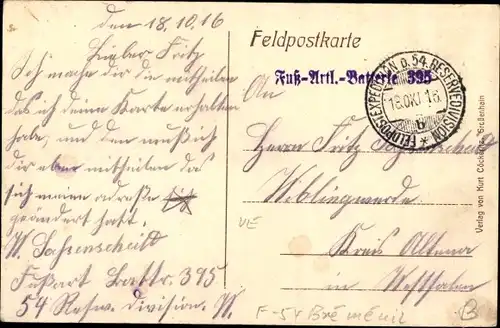 den 18.10.16
Lieber Fritz
Ich mache dir die mittheilen
das ich deine Karte erhalten
habe, und den muß ich
dir aber mittheilen das
sich meine adraße
geändert hatt.
W. Sassenscheidt
Fußart Battr. 395
54 Reserv. Division. W.
Feldpostkarte
Fuß-Artl.-Batterie 395
FELDPOSTEXPEDITION D. 54. RESERVEDIVISION
18.OKT 16
An
Herrn Fritz Sassenscheidt
Wiblingwerde
Kreis Altena
in Westfalen
VE
F-54 Bréménil
B
Verlag von Kurt Großenhain